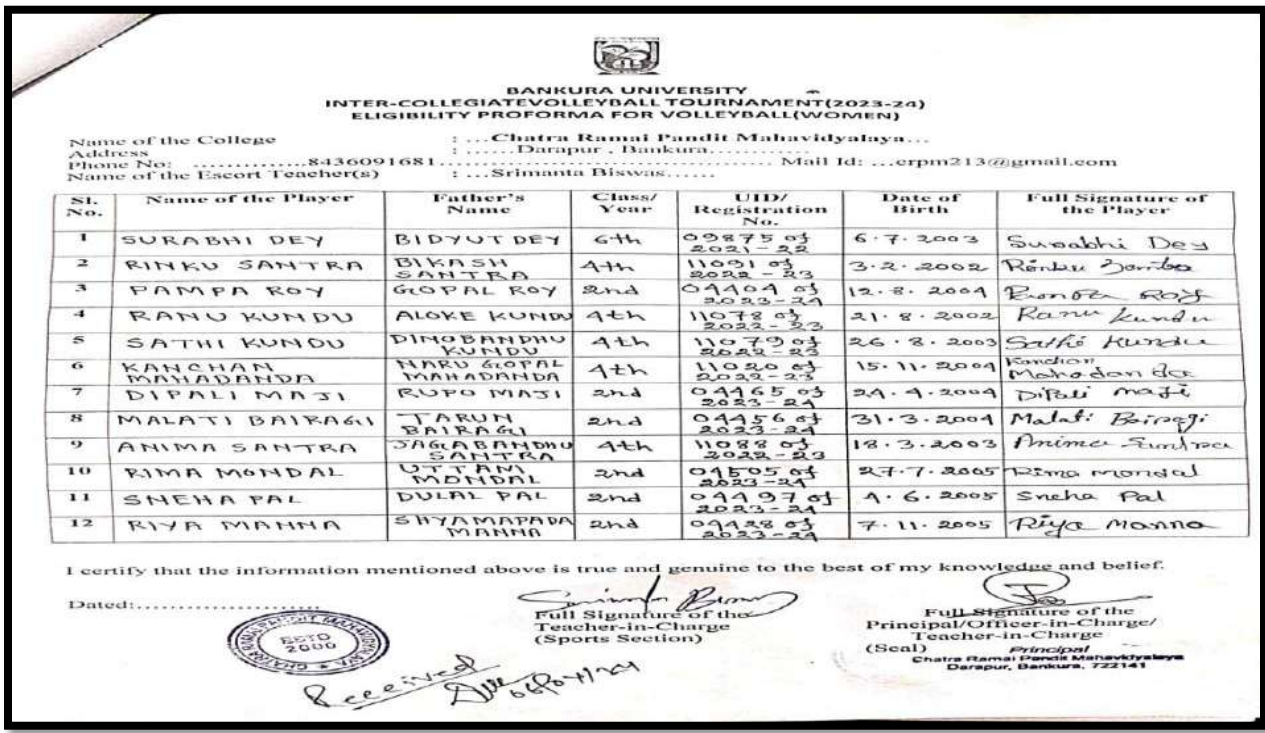 BANKURA UNIVERSITY
INTER-COLLEGIATEVOLLEYBALL TOURNAMENT(2023-24)
ELIGIBILITY PROFORMA FOR VOLLEYBALL(WOMEN)
Name of the College : ...Chatra Ramai Pandit Mahavidyalaya...
Address : ......Darapur , Bankura...........
Phone No: .............8436091681.......................................... Mail Id: ...crpm213@gmail.com
Name of the Escort Teacher(s) : ...Srimanta Biswas......
Sl. No. Name of the Player Father's Name Class/ Year UID/ Registration No. Date of Birth Full Signature of the Player
1 SURABHI DEY BIDYUT DEY 6th 09875 of 2021-22 6.7.2003 Surabhi Dey
2 RINKU SANTRA BIKASH SANTRA 4th 11091 of 2022-23 3.2.2002 Rinku Santra
3 PAMPA ROY GOPAL ROY 2nd 04404 of 2023-24 12.8.2004 Pampa Roy
4 RANU KUNDU ALOKE KUNDU 4th 11078 of 2022-23 21.8.2002 Ranu Kundu
5 SATHI KUNDU DINOBANDHU KUNDU 4th 11079 of 2022-23 26.8.2003 Sathi Kundu
6 KANCHAN MAHADANDA NARU GOPAL MAHADANDA 4th 11020 of 2022-23 15.11.2004 Kanchan Mahadanda
7 DIPALI MAJI RUPO MAJI 2nd 04465 of 2023-24 24.4.2004 Dipali maji
8 MALATI BAIRAGI TARUN BAIRAGI 2nd 04456 of 2023-24 31.3.2004 Malati Bairagi
9 ANIMA SANTRA JAGABANDHU SANTRA 4th 11088 of 2022-23 18.3.2003 Anima Santra
10 RIMA MONDAL UTTAM MONDAL 2nd 04505 of 2023-24 27.7.2005 Rima mondal
11 SNEHA PAL DULAL PAL 2nd 04497 of 2023-24 4.6.2005 Sneha Pal
12 RIYA MANNA SHYAMAPADA MANNA 2nd 04428 of 2023-24 7.11.2005 Riya Manna
I certify that the information mentioned above is true and genuine to the best of my knowledge and belief.
Dated:.......................
CHATRA RAMAI PANDIT MAHAVIDYALAYA
ESTD
2000
Full Signature of the
Teacher-in-Charge
(Sports Section)
Full Signature of the
Principal/Officer-in-Charge/
Teacher-in-Charge
(Seal) Principal
Chatra Ramai Pandit Mahavidyalaya
Darapur, Bankura, 722141
Received